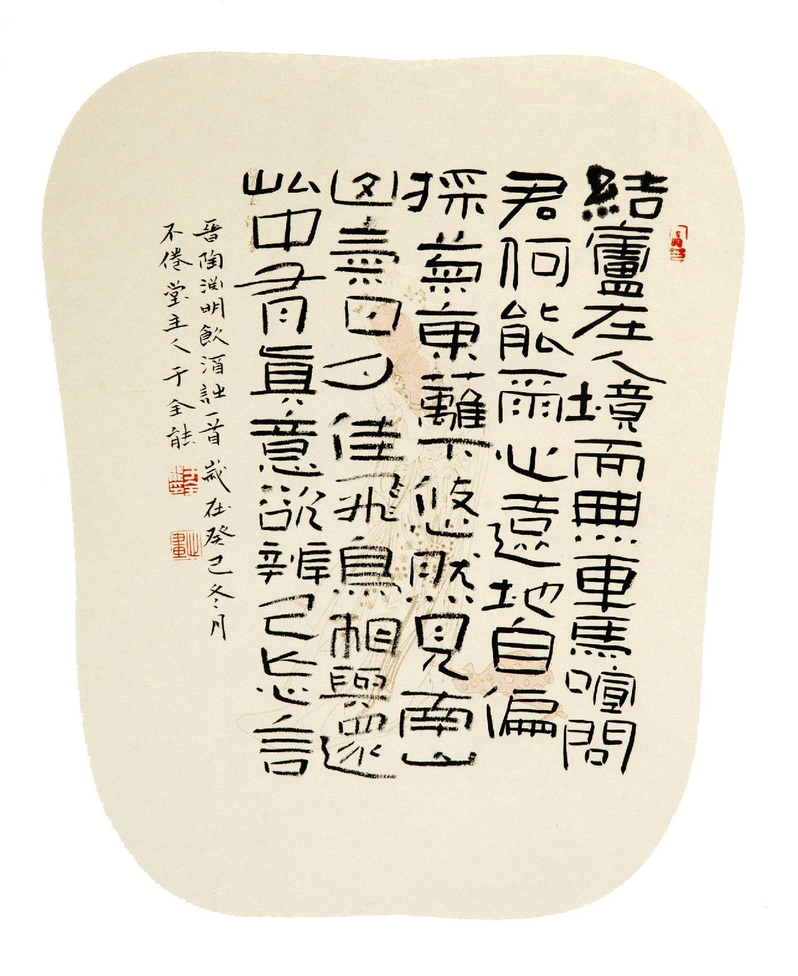 結廬在人境而無車馬喧問
君何能爾心遠地自偏
採菊東籬下悠然見南山
山炁日夕佳飛鳥相與還
此中有眞意欲辨已忘言
晉陶渕明飲酒詩一首 歲在癸巳冬月
不倦堂主人于全能